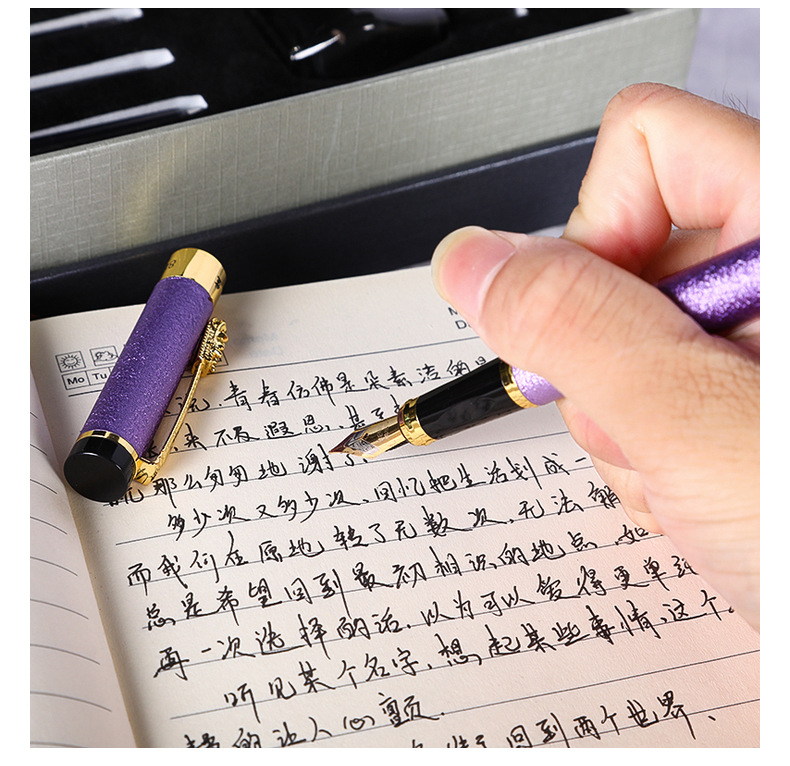 Mo Tu
流,青春仿佛是朵素洁的
来不及遐思,甚至
那么匆匆地谢了,
多少次又多少次,回忆把生活划成一
而我们在原地转了无数次,无法
总是希望回到最初相识的地点,如
再一次选择的话,以为可以爱得更单纯
听见某个名字,想起某些事情,这个
的让人心颤.
回到两个世界、